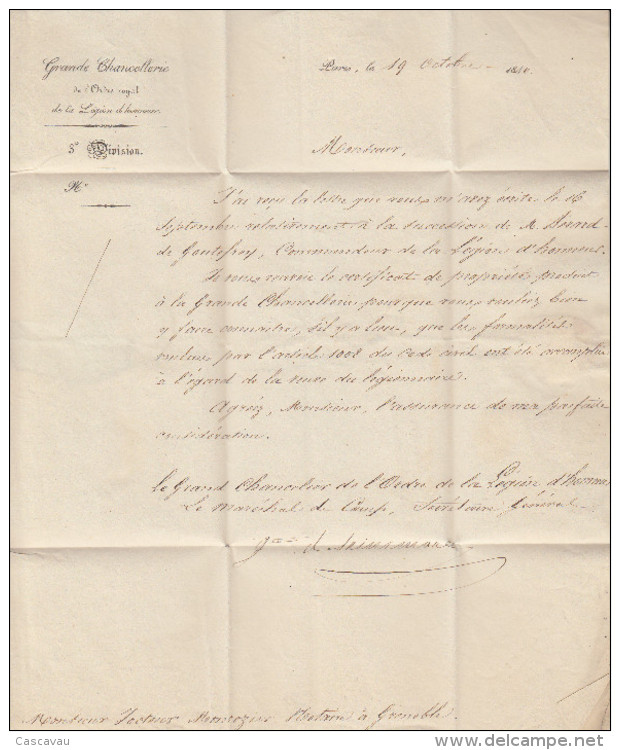 Grande Chancellerie
de l'Ordre royal
de la Légion d'honneur.
5e Division.
No
Paris, le 19 Octobre 1840.
Monsieur,
J'ai reçu la lettre que vous m'avez écrite le 16
Septembre relativement à la succession de M.
de Commandeur de la Légion d'honneur.
Je vous renvoie le certificat de propriété produit
à la Grande Chancellerie pour que vous veuillez bien
y faire connaître, s'il y a lieu, que les formalités
voulues par l'article 1008 du code civil ont été accomplies
à l'égard de la veuve du légionnaire.
Agréez, Monsieur, l'assurance de ma parfaite
considération.
Le Grand Chancelier de l'Ordre de la Légion d'honneur
Le Maréchal de Camp, Secrétaire Général
Monsieur Notaire à Grenoble.
Cascavau
delcampe.net